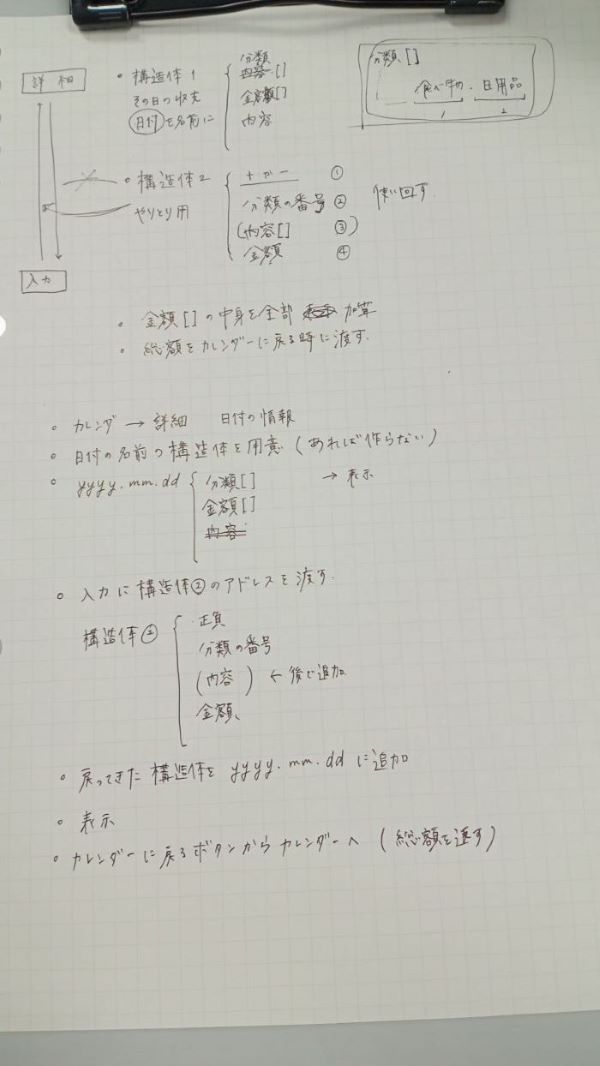 詳細
・構造体1
その日の収支
日付を名前に
分類
内容[]
金額[]
内容
分類[]
食べ物・日用品
1 2
・構造体2
やりとり用
+か- ①
分類の番号 ②
(内容[] ③)
金額 ④
使い回す
入力
・金額[]の中身を全部 加算
・総額をカレンダーに戻る時に渡す.
・カレンダ → 詳細 日付の情報
・日付の名前の構造体を用意(あれば作らない)
・yyyy.mm.dd
分類[] → 表示
金額[]
内容
・入力に構造体②のアドレスを渡す.
構造体②
正負
分類の番号
(内容) ← 後で追加
金額
・戻ってきた構造体を yyyy.mm.dd に追加
・表示
・カレンダーに戻るボタンからカレンダーへ(総額を返す)